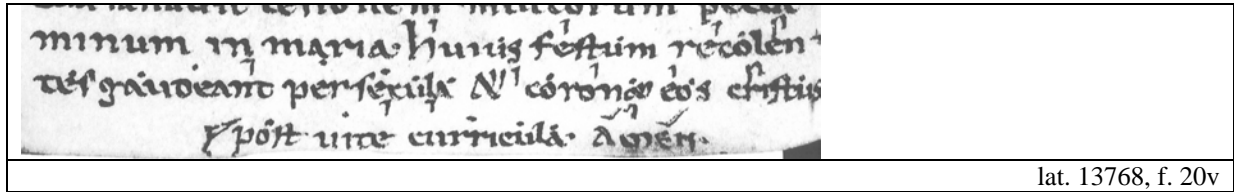 multorum
minum in maria· huius festum recolen
tes gaudeant per secula eos christus
post uite curricula· Amen·
lat. 13768, f. 20v